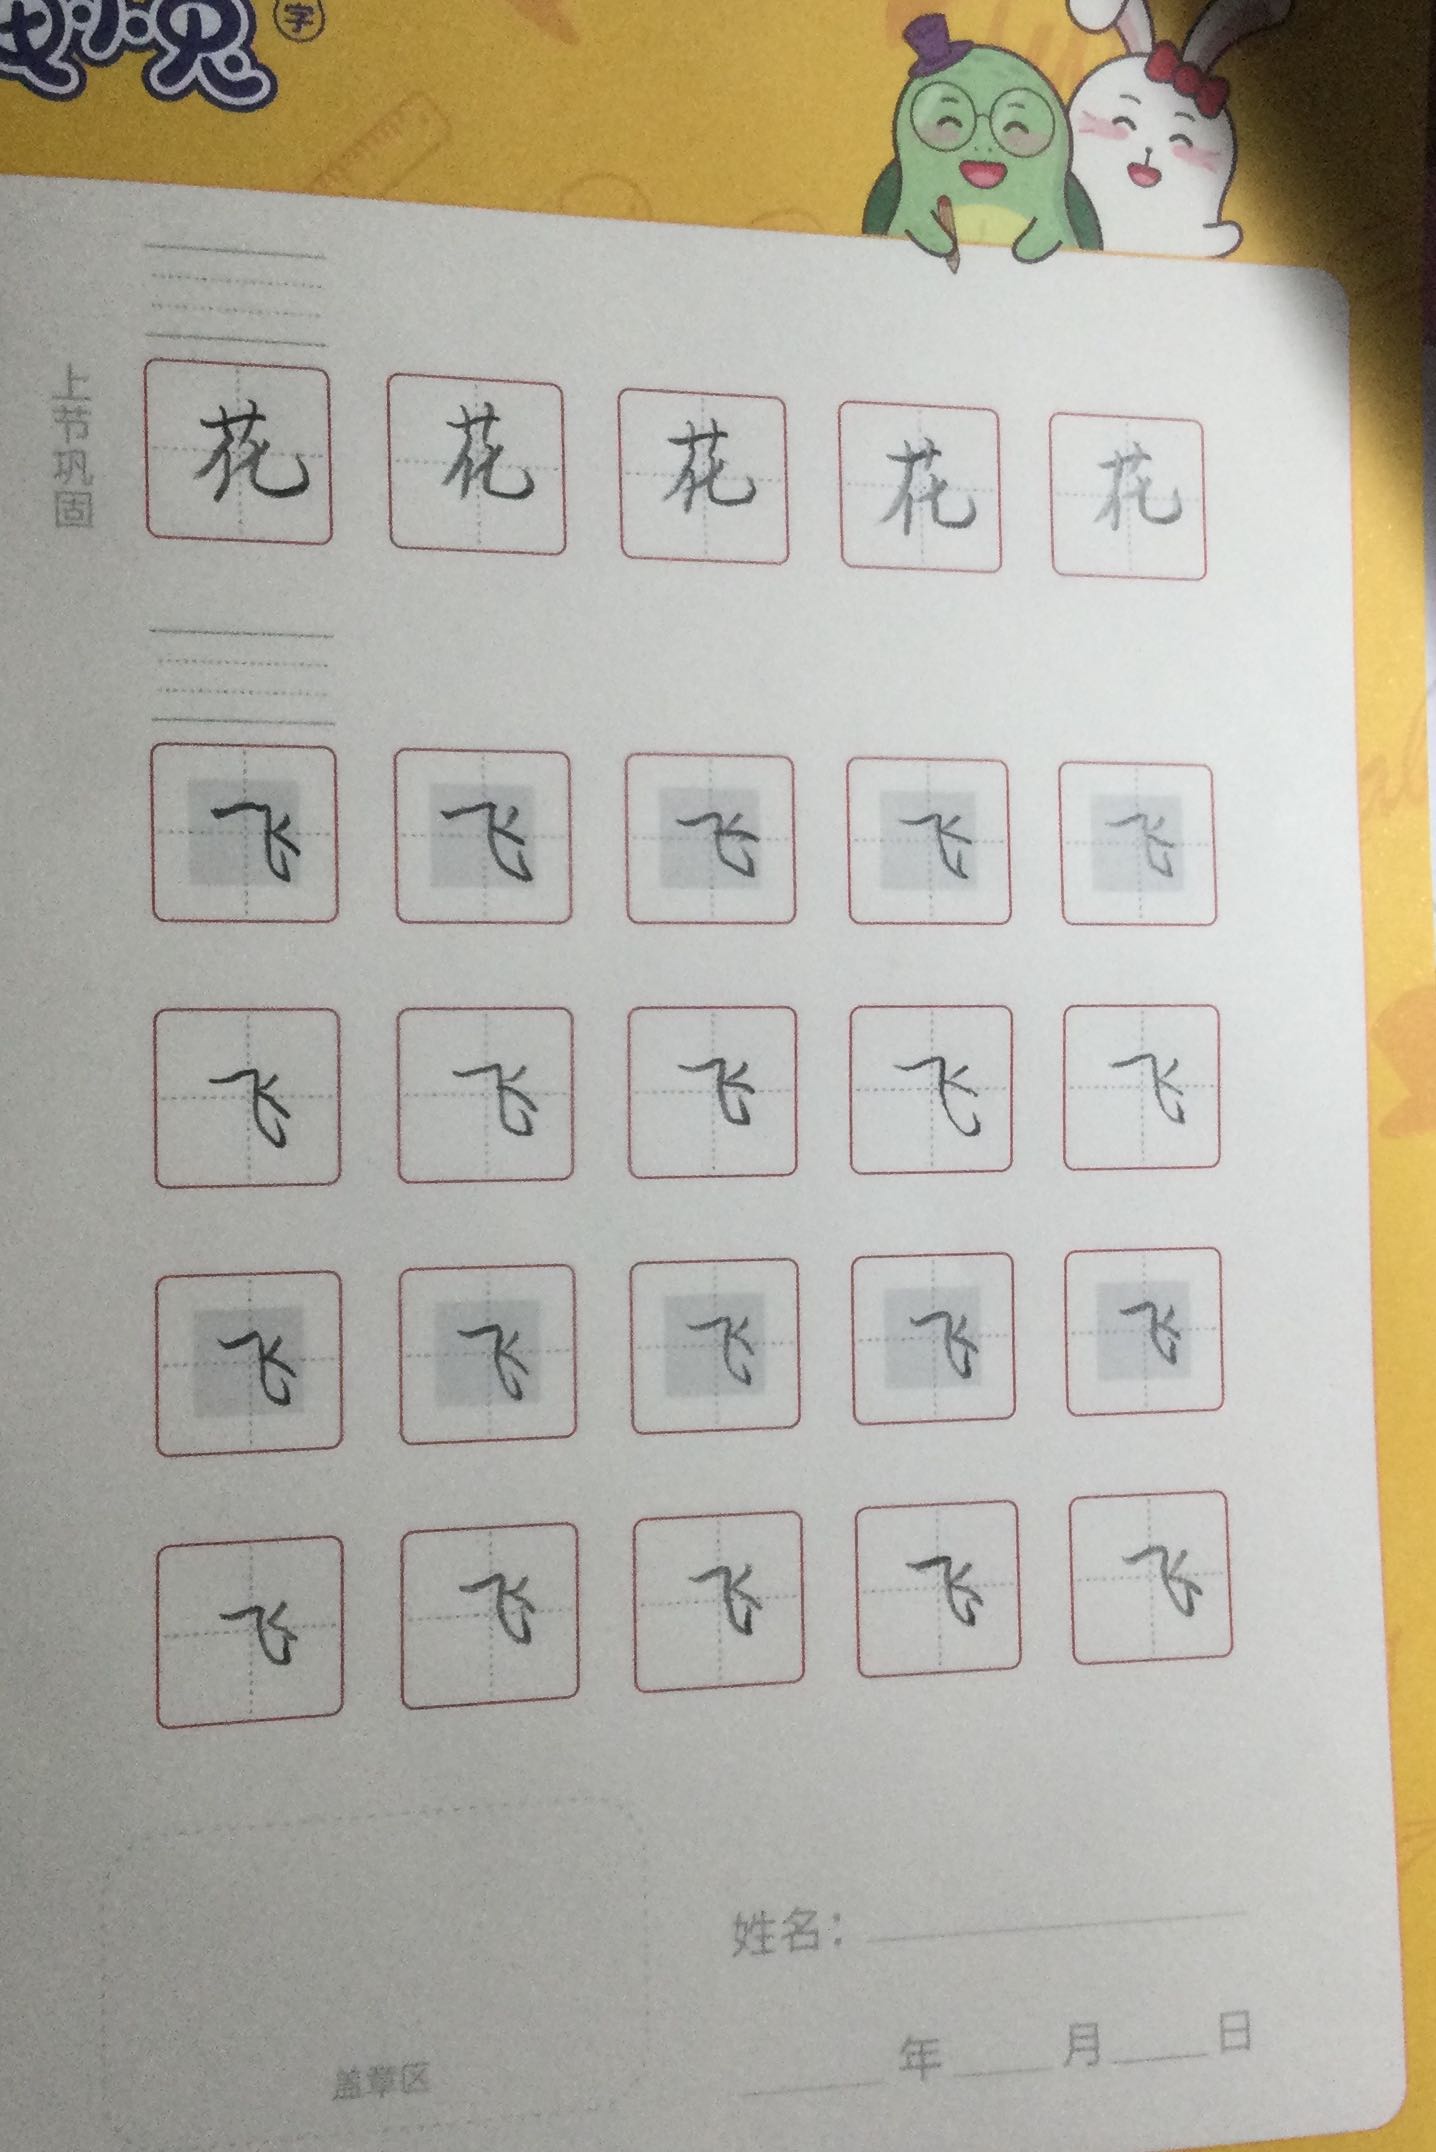 字
上节巩固
花 花 花 花 花
飞 飞 飞 飞 飞
飞 飞 飞 飞 飞
飞 飞 飞 飞 飞
飞 飞 飞 飞 飞
姓名：
年 月 日
盖章区